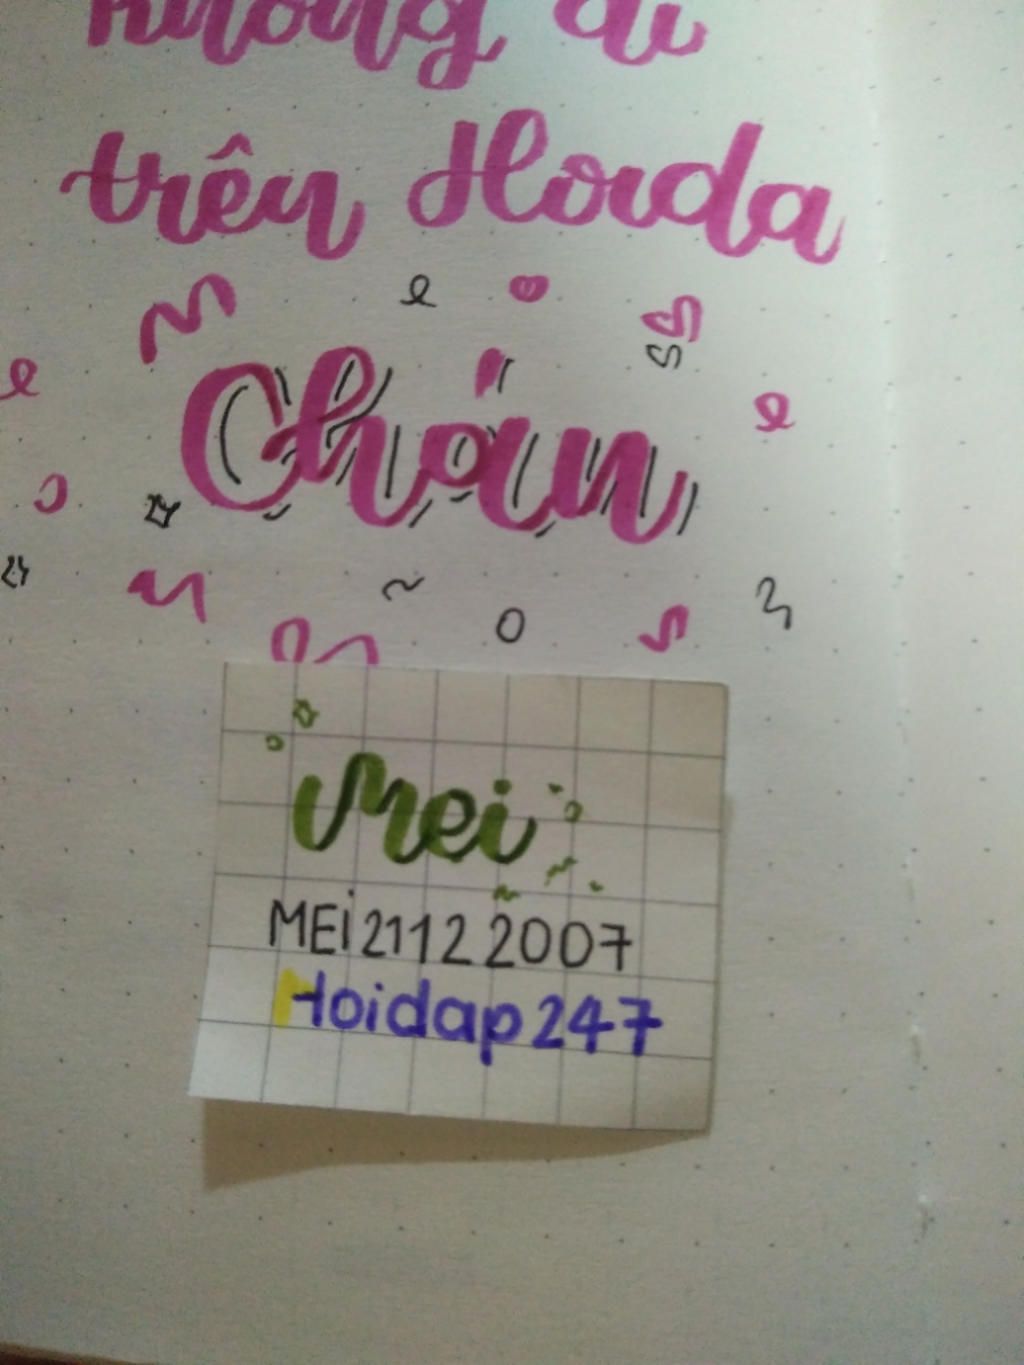 Không di
trên Hoida
Chán
Mei
MEi21122007
Hoidap247